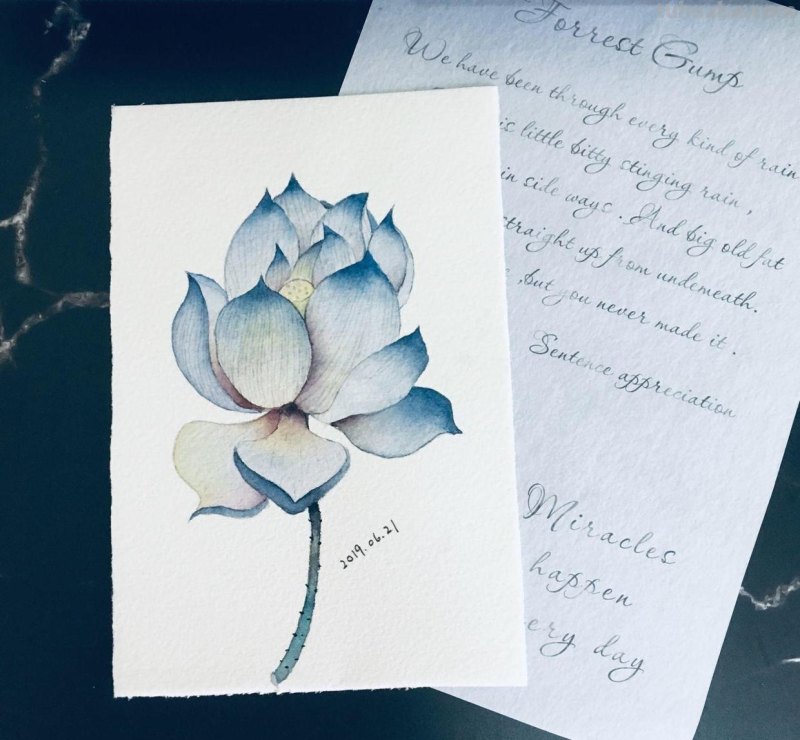 2019.06.21
Forrest Gump
We have been through every kind of rain
is little bitty stinging rain,
in side ways. And big old fat
straight up from undemeath.
,but you never made it.
Sentence appreciation
Miracles
happen
ery day